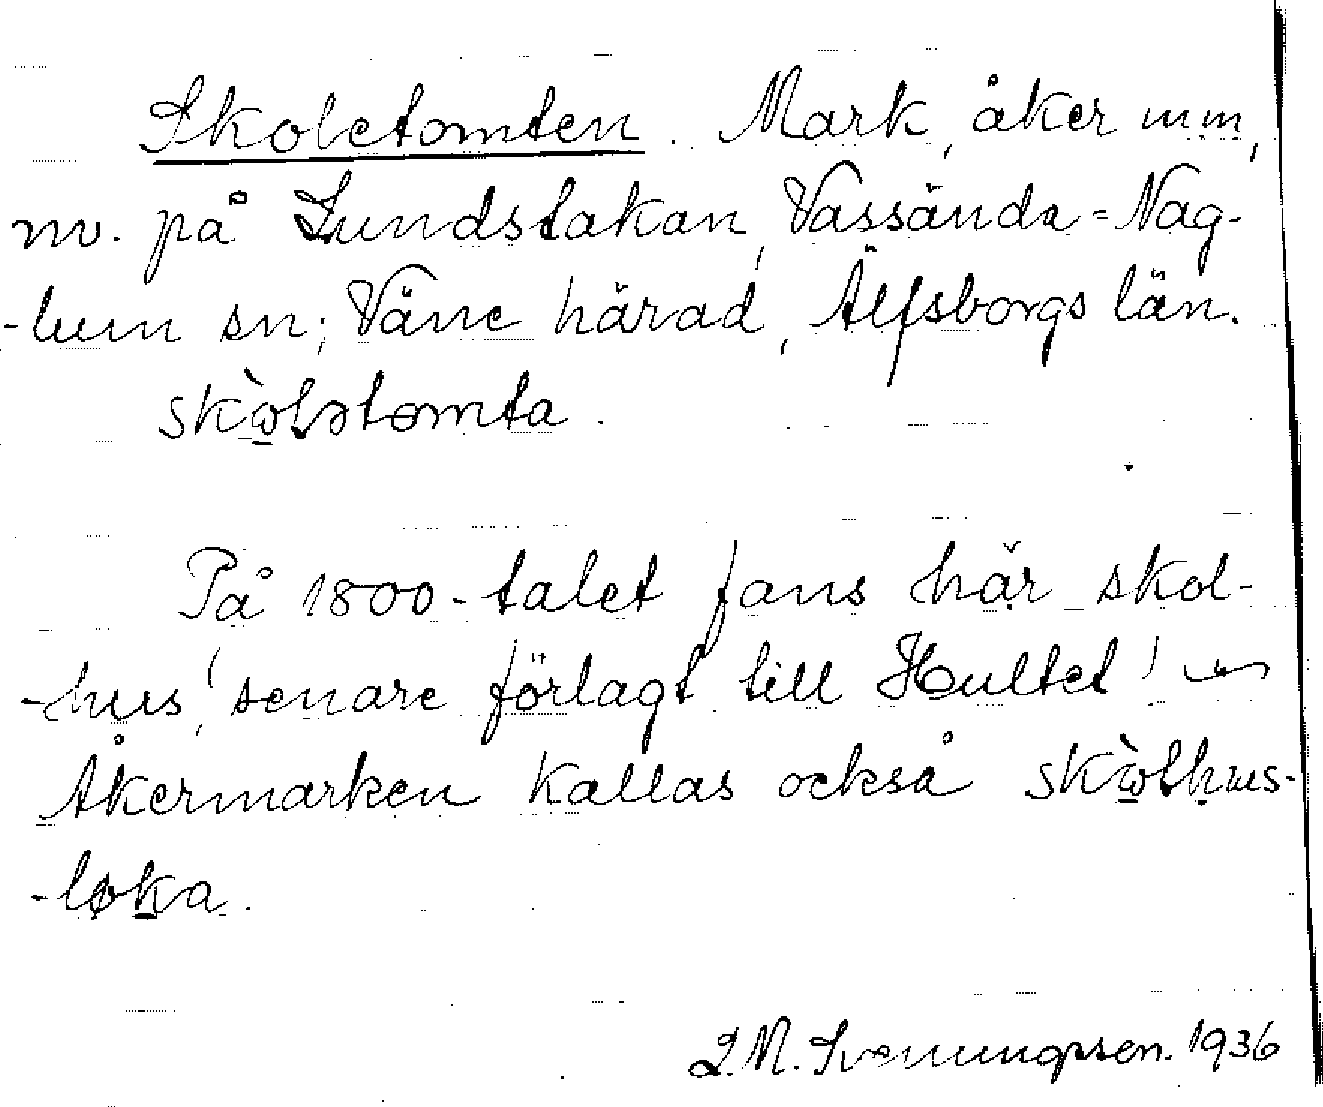 Skoletomten. Mark, åker m.m,
nv. på Lundstakan, Vassända-Nag-
-lum sn; Väne härad, Älfsborgs län.
skòlətomta.
På 1800-talet fans här skol-
-hus, senare förlagt till Hultet!
Åkermarken kallas också skòlhus-
-løka.
L.M. Svenungsson. 1936